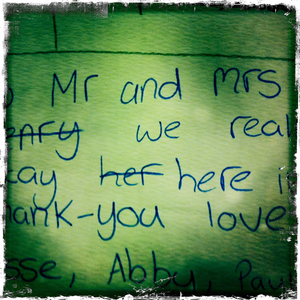 Mr and mrs
we real
tay her here i
hank-you love
sse, Abby, Pau